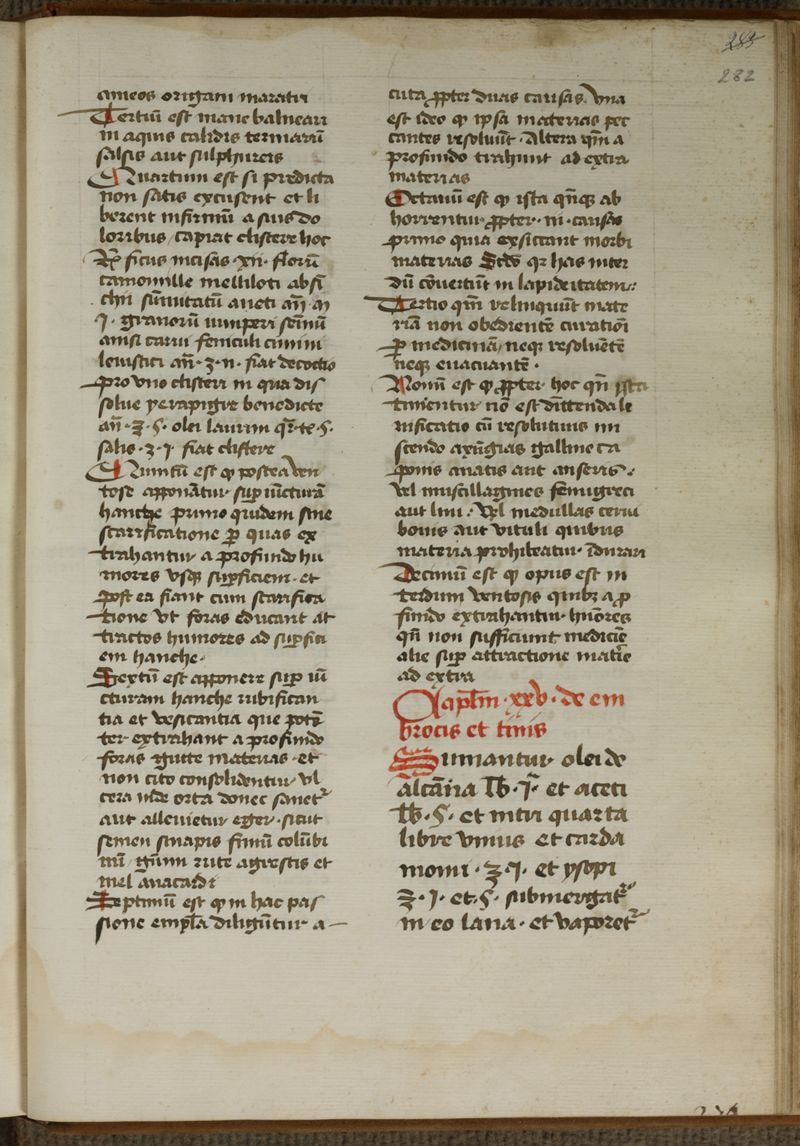 283
282
ameos origani maratri
Tertiū est mane balneari
in aquis calidis termarū
salsis aut sulphureis
Quartum est si predicta
non satis excusent et li
berent infirmū a suis do
loribus capiat clistere hoc
℞ ficus incisas .xii. florū
camomille melliloti absī
thii sūmitatū aneti an̄ m̄
.i. granorū iuniperi semīnū
anisi carui feniculi cimini
leuistici an̄ .ʒ.ii. fiat decoctio
pro vno clisteri in qua dis
solue yerapigre benedicte
an̄ .℥.ß. olei laurini qr̄te.ß.
salis .ʒ.i. fiat clistere
Quintū est qꝫ postea ven
tose apponātur suꝑ iūcturā
hanche primo quidem sine
scarificatione ꝑ quas ex
trahantur a profundo hu
mores vsqꝫ suꝑficiem. et
post ea fiant cum scarifica
tione vt foras educant at
tractos humores ad suꝑfici
em hanche.
Sextū est apponere suꝑ iū
cturam hanche rubifican
tia et vesicantia que potēt
ter extrahant a profundo
foras gutte materias. et
non cito consolidentur vl
cera inde orta donec sanetᷣ
aut allenietur eger. sicut
semen sinapis fimū colūbi
nū gūmi rute agrestis et
mel anacardi
Septimū est qꝫ in hac pas
sione emplꝰa diligūtur a
cuta ꝓpter duas causas. Vna
est ideo qꝫ ipsa materias pec
cantes resoluūt. Altera qm̄ a
profundo trahunt ad extra
materias
Octauū est qꝫ ista qn̄qꝫ ab
horrentur ꝓpter .iii. causas
primo quia exsiccant morbi
materias Scd̄o qꝛ has inter
dū cōuertūt in lapideitatem:
Tertio qm̄ relinquūt mate
riā non obedientē curatiōi
ꝑ medicinā neqꝫ resoluētē
neqꝫ euacuantē.
Nonū est qꝫ ꝓpter hoc qn̄ ista
timentur nō est dimittenda le
nificatio cū resolutiuis mi
scendo axūgias galline ca
ponis anatis aut anseris.
Vel muscillagines fenugreci
aut lini. Vel medullas cerui
bouis aut vituli quibus
materia prohibeatur īdurari
Decimū est qꝫ opus est in
terdum ventosis quibꝫ a ꝓ
fundo extrahantur hūores
qn̄ non sufficiunt medicīe
alie suꝑ attractione matīe
ad extra
Capl̄m .xxv. de em
brocis et tinis
Sumantur olei de
alcānna lb̄.i. et aceti
lb̄.ß. et nitri quarta
libre vnius et carda
momi .ʒ.i. et ysopi
ʒ.i. et.ß. submergatᷣ
in eo lana. et vaporetᷣ